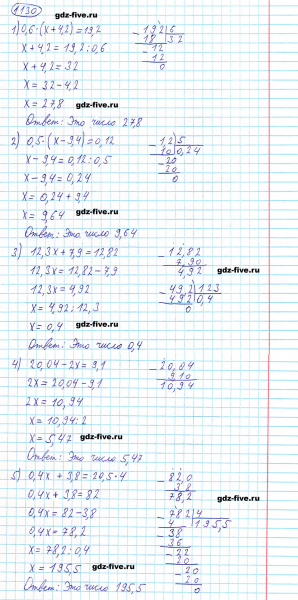 1130
gdz-five.ru
1) 0,6·(x+4,2)=19,2
x+4,2=19,2:0,6
x+4,2=32
x=32-4,2
x=27,8
gdz-five.ru
Ответ: Это число 27,8
-192|6
18|32
-12
12
0
gdz-five.ru
2) 0,5·(x-9,4)=0,12
x-9,4=0,12:0,5
x-9,4=0,24
x=0,24+9,4
x=9,64
gdz-five.ru
Ответ: Это число 9,64
-1,2|5
10|0,24
-20
20
0
3) 12,3x+7,9=12,82
12,3x=12,82-7,9
12,3x=4,92
x=4,92:12,3
x=0,4
gdz-five.ru
Ответ: Это число 0,4
-12,82
7,90
4,92
gdz-five.ru
-49,2|123
492|0,4
0
4) 20,04-2x=9,1
2x=20,04-9,1
2x=10,94
x=10,94:2
x=5,47
gdz-five.ru
Ответ: Это число 5,47
gdz-five.ru
-20,04
9,10
10,94
5) 0,4x+3,8=20,5·4
0,4x+3,8=82
0,4x=82-3,8
0,4x=78,2
x=78,2:0,4
x=195,5
gdz-five.ru
Ответ: Это число 195,5
-82,0
3,8
78,2
gdz-five.ru
-782|4
4|195,5
-38
36
-22
20
-20
20
0